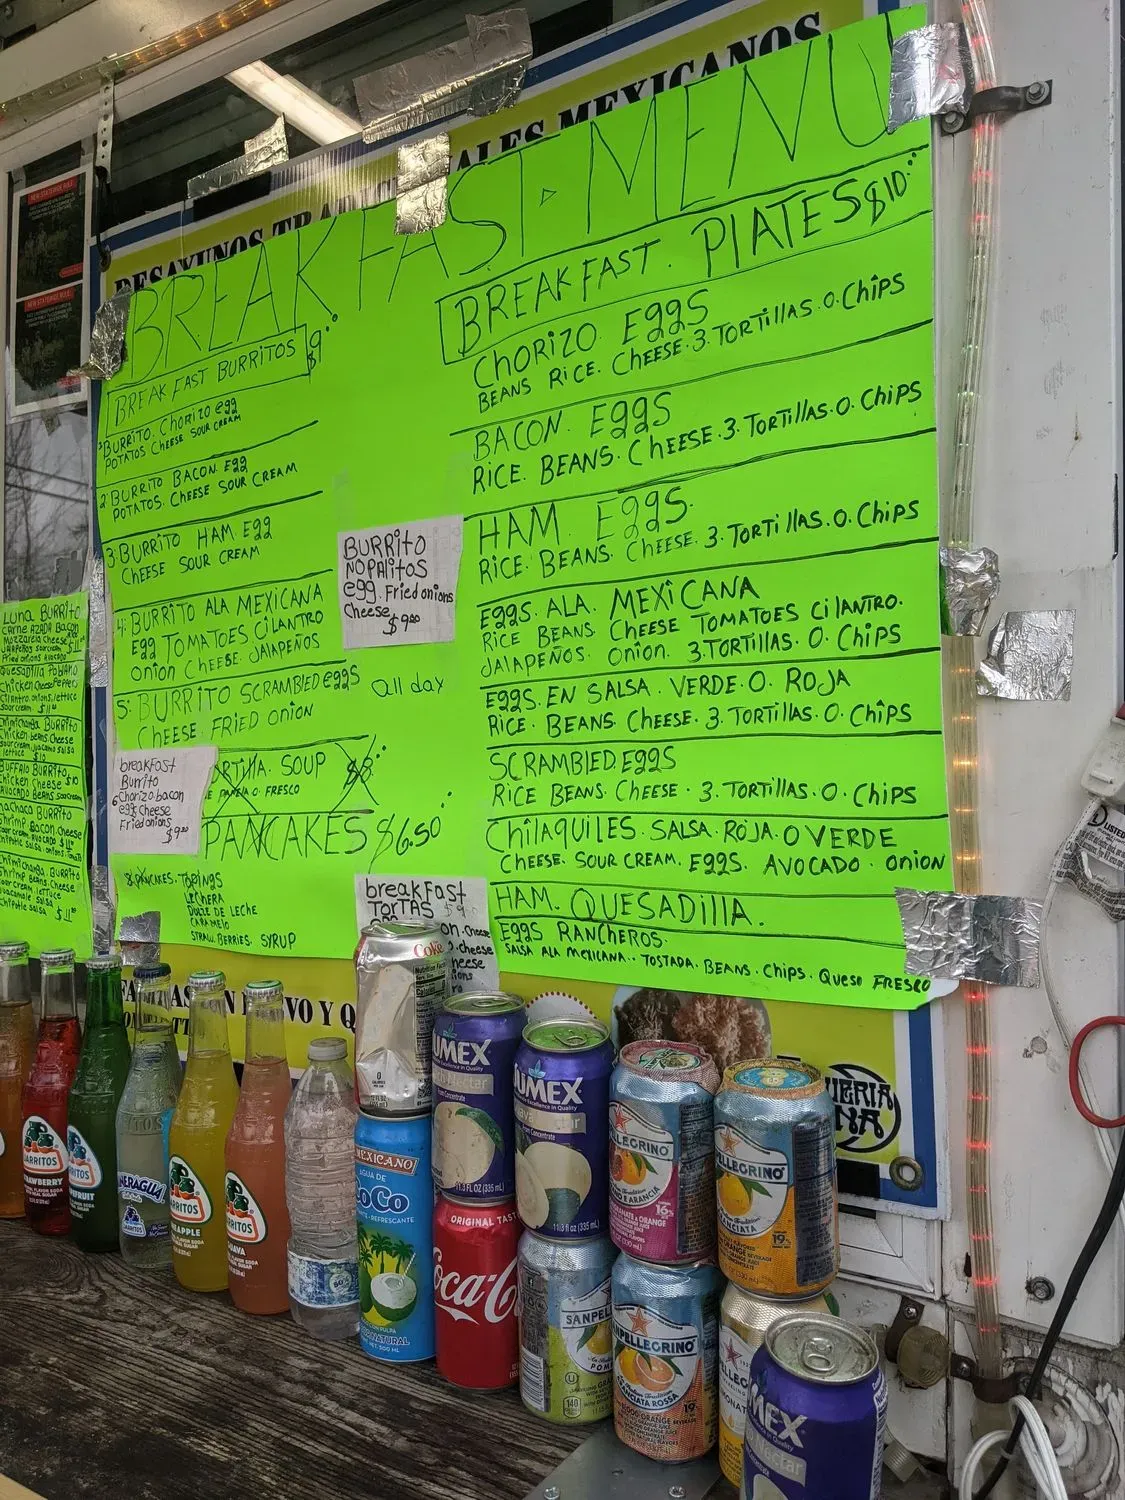 DESAYUNOS TRA
ALES MEXICANOS
BREAKFAST MENU
BREAKFAST BURRITOS $9.00
1 BURRITO. CHORIZO egg
POTATOS CHEESE SOUR CREAM
2 BURRITO BACON. Egg
POTATOS. CHEESE SOUR CREAM
3 BURRITO HAM Egg
CHEESE SOUR CREAM
4: BURRITO ALA MEXICANA
Egg TOMATOES CILANTRO
ONION CHEESE. JALAPEÑOS
5: BURRITO SCRAMBLED eggs
CHEESE FRIED ONION
All day
BURRITO
NOPALITOS
egg. Fried onions
Cheese
$9.00
breakFast
Burrito
6 Chorizo bacon
egg Cheese
Fried onions
$9.00
RTILLA. SOUP $8.00
O. FRESCO
PANCAKES $6.50
PANCAKES. TOPINGS
LECHERA
DULZE DE LECHE
CARAMELO
STRAWBERRIES. SYRUP
breakFast
TorTAS
BREAKFAST. PLATES $10.00
CHORIZO EggS
BEANS RICE. CHEESE. 3. TORTILLAS. O. CHIPS
BACON. EGGS
RICE. BEANS. CHEESE. 3. TORTILLAS. O. CHIPS
HAM EggS.
RICE. BEANS. CHEESE. 3. TORTILLAS. O. CHIPS
EggS. ALA. MEXICANA
RICE BEANS CHEESE TOMATOES CILANTRO.
JALAPEÑOS. ONION. 3. TORTILLAS. O. CHIPS
EggS. EN SALSA. VERDE. O. ROJA
RICE. BEANS CHEESE. 3. TORTILLAS. O. CHIPS
SCRAMBLED EGGS
RICE BEANS CHEESE. 3. TORTILLAS. O. CHIPS
CHILAQUILES. SALSA. ROJA. O VERDE
CHEESE. SOUR CREAM. EGGS. AVOCADO. ONION
HAM. QUESADILLA.
EGGS RANCHEROS.
SALSA ALA MEXICANA.. TOSTADA. BEANS. CHIPS. QUESO FRESCO
LUNA BURRITO
CARNE AZADA Bacon
QUESADILLA POBLANO
Chicken Cheese Peppers
Cilantro. onions. lettuce
sour cream. $11.00
CHIMICHANGA BURRITO
Chicken beans. Cheese
lettuce $10
BUFFALO BURRITO $10
Chicken Cheese
AVOCADO BEANS sour cream
MACHACA BURRITO
Shrimp Bacon Cheese
Chimichanga. BURRITO
Shrimp Beans. Cheese
Sour cream. lettuce
Guacamole Salsa
Chipotle Salsa $11.00
VO Y Q
JARRITOS
STRAWBERRY
JARRITOS
MINERAGUA
JARRITOS
PINEAPPLE
JARRITOS
GUAVA
Coke
MEXICANO
AGUA DE
CoCo
REFRESCANTE
ORIGINAL TASTE
Coca-Cola
JUMEX
Nectar
11.3 FL OZ (335 mL)
JUMEX
11.3 fl oz (335 mL)
PELLEGRINO
16%
PELLEGRINO
ARANCIATA
19%
SANPELLEGRINO
140
PELLEGRINO
ARANCIATA ROSSA
19%
JUMEX
Nectar